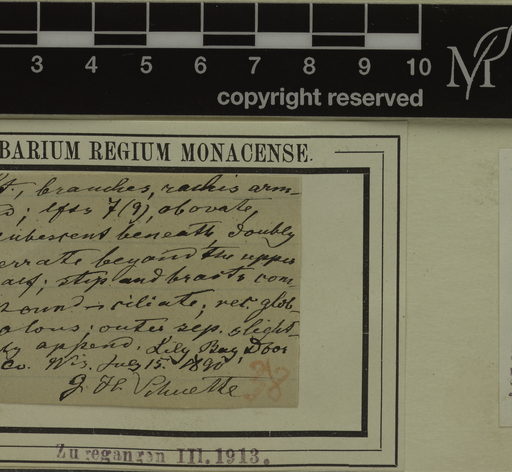 3 4 5 6 7 8 9 10
copyright reserved
BARIUM REGIUM MONACENSE.
branches, rachis arm-
; lfts 7 (9), obovate,
pubescent beneath, doubly
serrate beyond the upper
half; stip and bracts com-
pound-ciliate; rec. glob-
; outer sep. slight-
ly append. Lily Bay, Door
Co. Wis. July 15. 1890
J. H. Schuette
Zugegangen III. 1913.